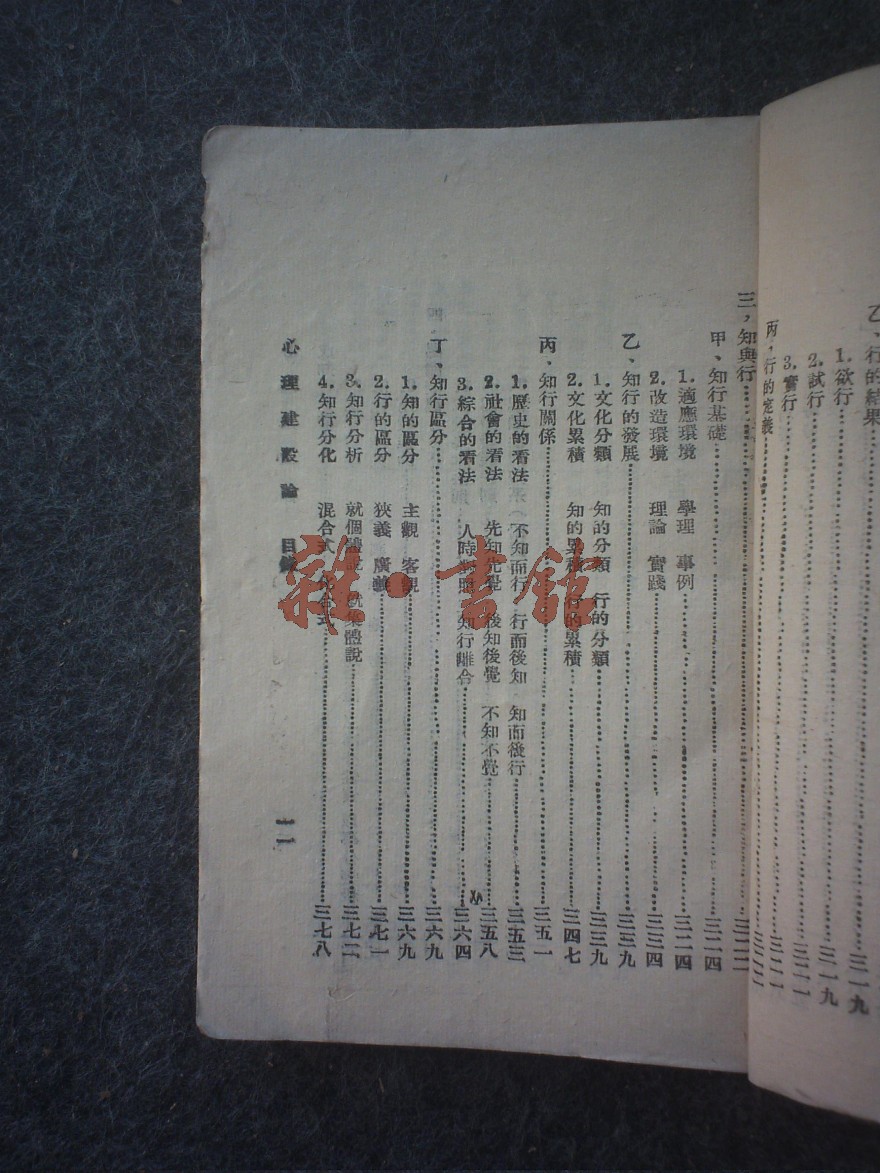 乙、行的結果
1.欲行……三一九
2.試行……三一九
3.實行……三二一
丙，行的定義
三，知與行
甲、知行基礎……三二四
1.適應環境 學理 事例……三二四
2.改造環境 理論 實踐……三三四
乙、知行的發展……三三九
1.文化分類 知的分類 行的分類……三三九
2.文化累積 知的累積 行的累積……三四七
丙、知行關係……三五一
1.歷史的看法（不知而行 行而後知 知而後行……三五三
2.社會的看法 先知先覺 後知後覺 不知不覺……三五八
3.綜合的看法 人時對照 知行離合……三六四
丁、知行區分……三六九
1.知的區分 主觀 客觀……三六九
2.行的區分 狹義 廣義……三七一
3.知行分析 就個體說 就集體說……三七二
4.知行分化 混合式 化合式……三七八
心理建設論 目錄
雜·書館